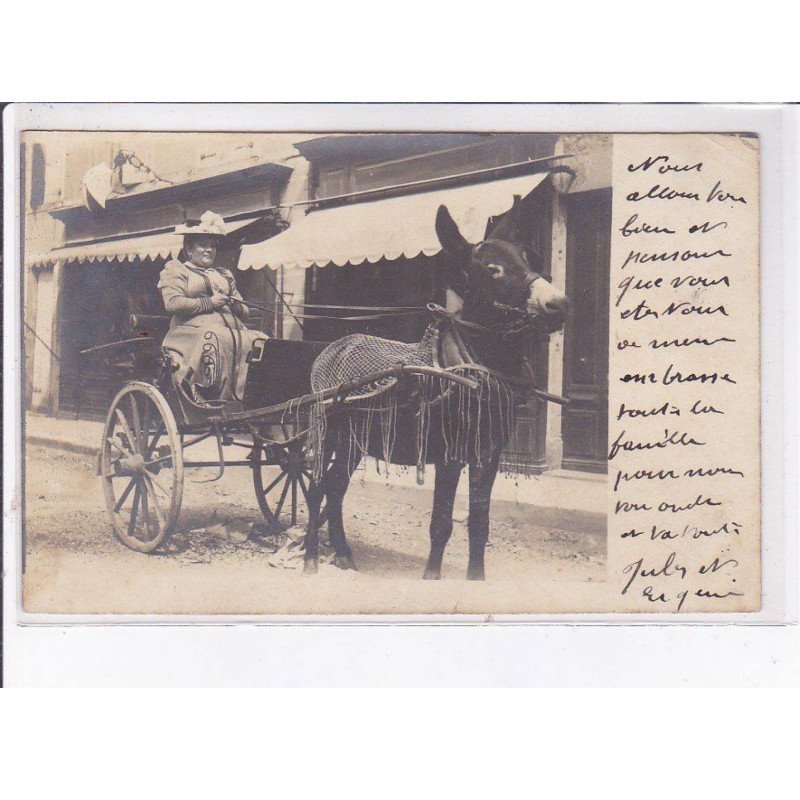 Nous
allons ton
bien et
pensons
que vous
etes vous
de meme
enbrasse
toute la
famille
pour nou
ton oncle
et ta tante
Jules et
Eugeni